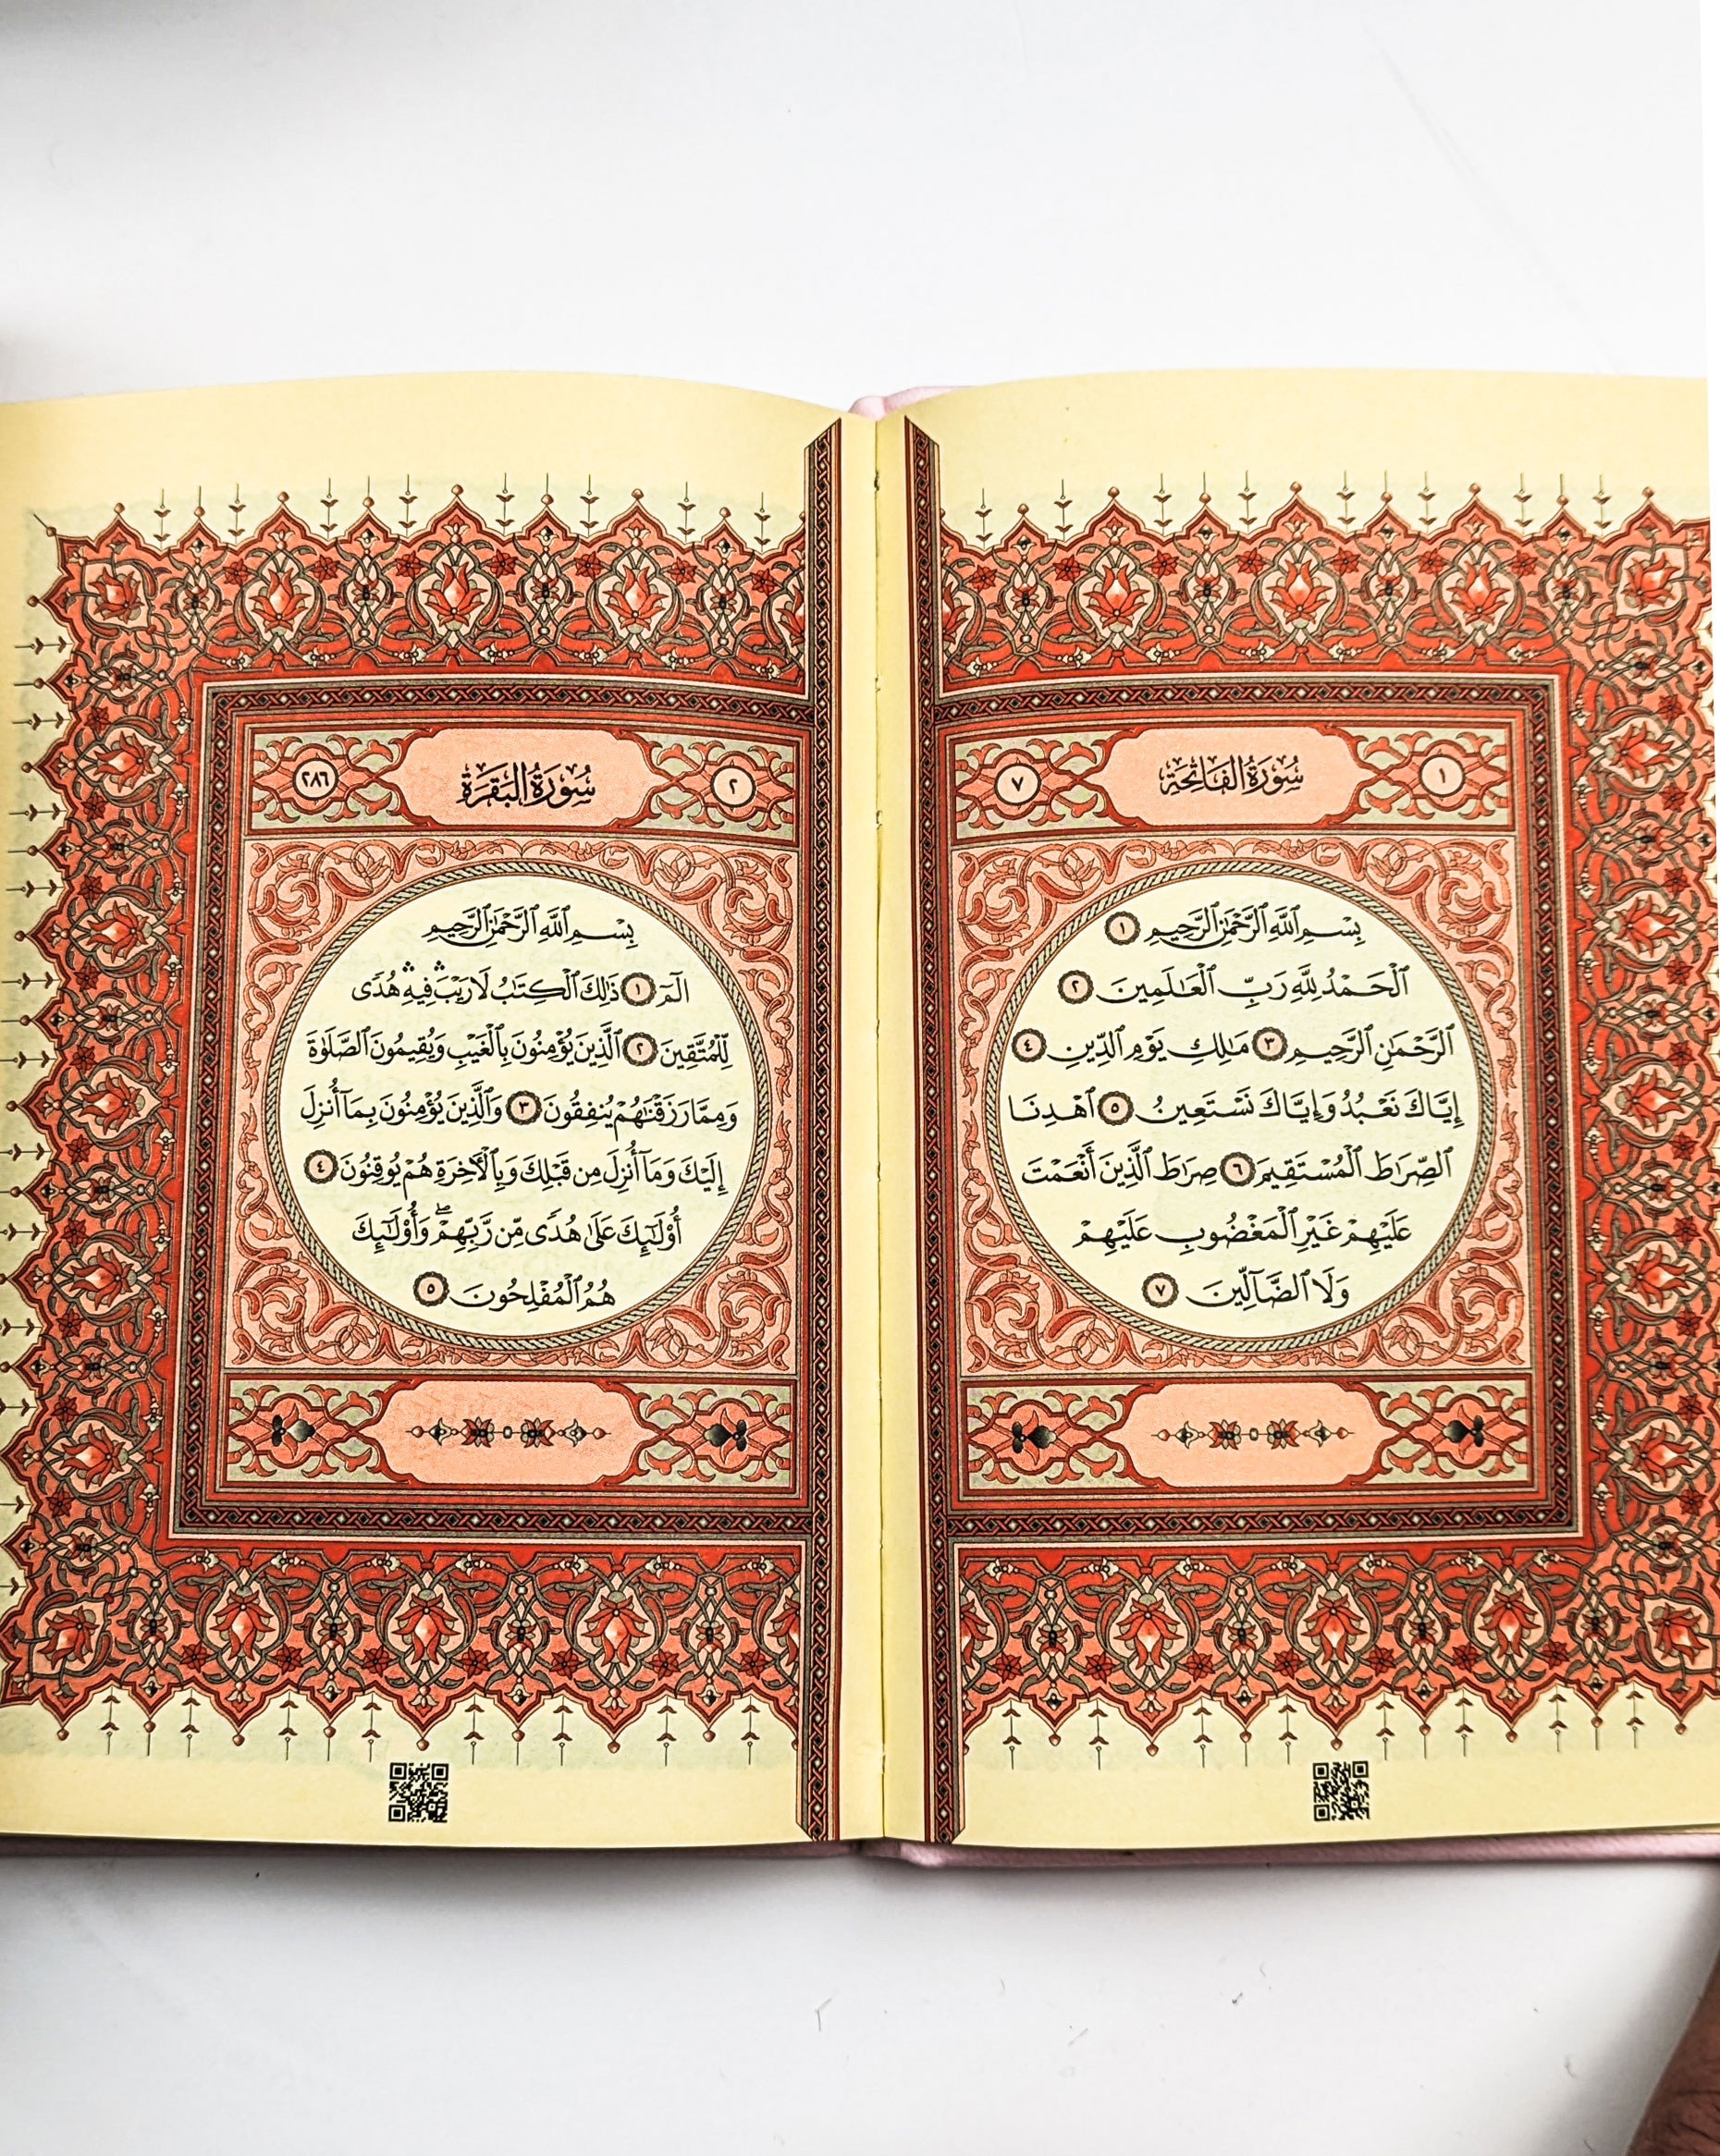 ١ سُورَةُ الفَاتِحَةِ ٧
بِسْمِ ٱللَّهِ ٱلرَّحْمَٰنِ ٱلرَّحِيمِ ١
ٱلْحَمْدُ لِلَّهِ رَبِّ ٱلْعَٰلَمِينَ ٢
ٱلرَّحْمَٰنِ ٱلرَّحِيمِ ٣ مَٰلِكِ يَوْمِ ٱلدِّينِ ٤
إِيَّاكَ نَعْبُدُ وَإِيَّاكَ نَسْتَعِينُ ٥ ٱهْدِنَا
ٱلصِّرَٰطَ ٱلْمُسْتَقِيمَ ٦ صِرَٰطَ ٱلَّذِينَ أَنْعَمْتَ
عَلَيْهِمْ غَيْرِ ٱلْمَغْضُوبِ عَلَيْهِمْ
وَلَا ٱلضَّآلِّينَ ٧
٢ سُورَةُ البَقَرَةِ ٢٨٦
بِسْمِ ٱللَّهِ ٱلرَّحْمَٰنِ ٱلرَّحِيمِ
الٓمٓ ١ ذَٰلِكَ ٱلْكِتَٰبُ لَا رَيْبَۛ فِيهِۛ هُدًى
لِّلْمُتَّقِينَ ٢ ٱلَّذِينَ يُؤْمِنُونَ بِٱلْغَيْبِ وَيُقِيمُونَ ٱلصَّلَوٰةَ
وَمِمَّا رَزَقْنَٰهُمْ يُنفِقُونَ ٣ وَٱلَّذِينَ يُؤْمِنُونَ بِمَآ أُنزِلَ
إِلَيْكَ وَمَآ أُنزِلَ مِن قَبْلِكَ وَبِٱلْأَخِرَةِ هُمْ يُوقِنُونَ ٤
أُوْلَٰٓئِكَ عَلَىٰ هُدًى مِّن رَّبِّهِمْۖ وَأُوْلَٰٓئِكَ
هُمُ ٱلْمُفْلِحُونَ ٥